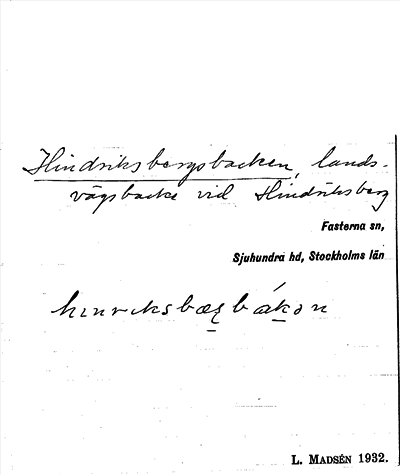 Hindriksbergsbacken, lands-
vägsbacke vid Hindriksberg
Fasterna sn,
Sjuhundra hd, Stockholms län
hinriksbæʀ̱bák̲ən
L. MADSÉN 1932.